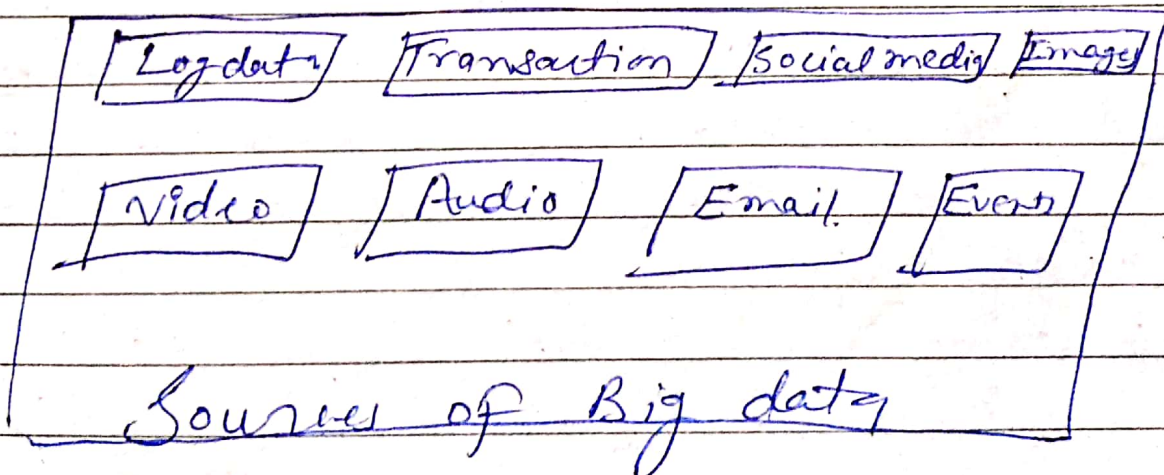 Log data Transaction Social media Images
Video Audio Email. Events
Sources of Big data